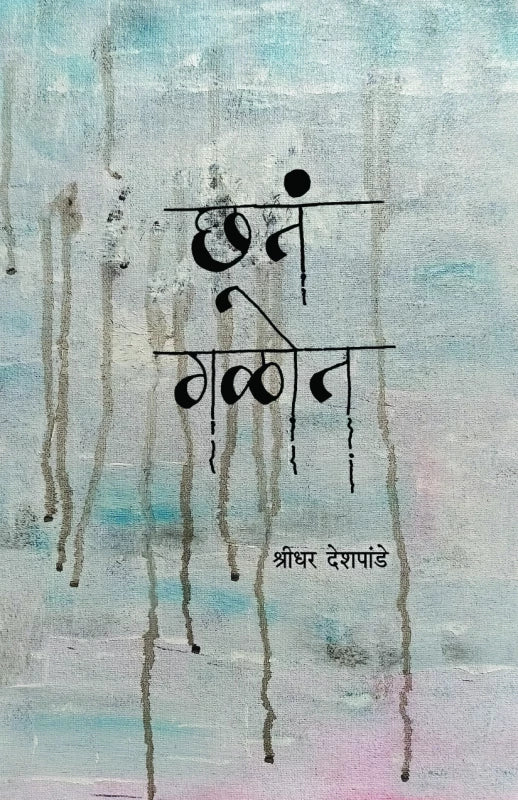 छतं
गळोत
श्रीधर देशपांडे